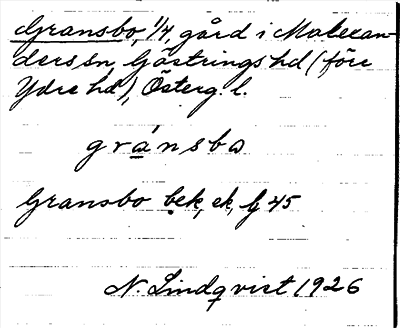 Gransbo, 1/4, gård i Malexan-
ders sn, Göstrings hd (förr
Ydre hd), Österg. l.
gránsbo
Gransbo bek, ek, Lj 45
N. Lindqvist 1926